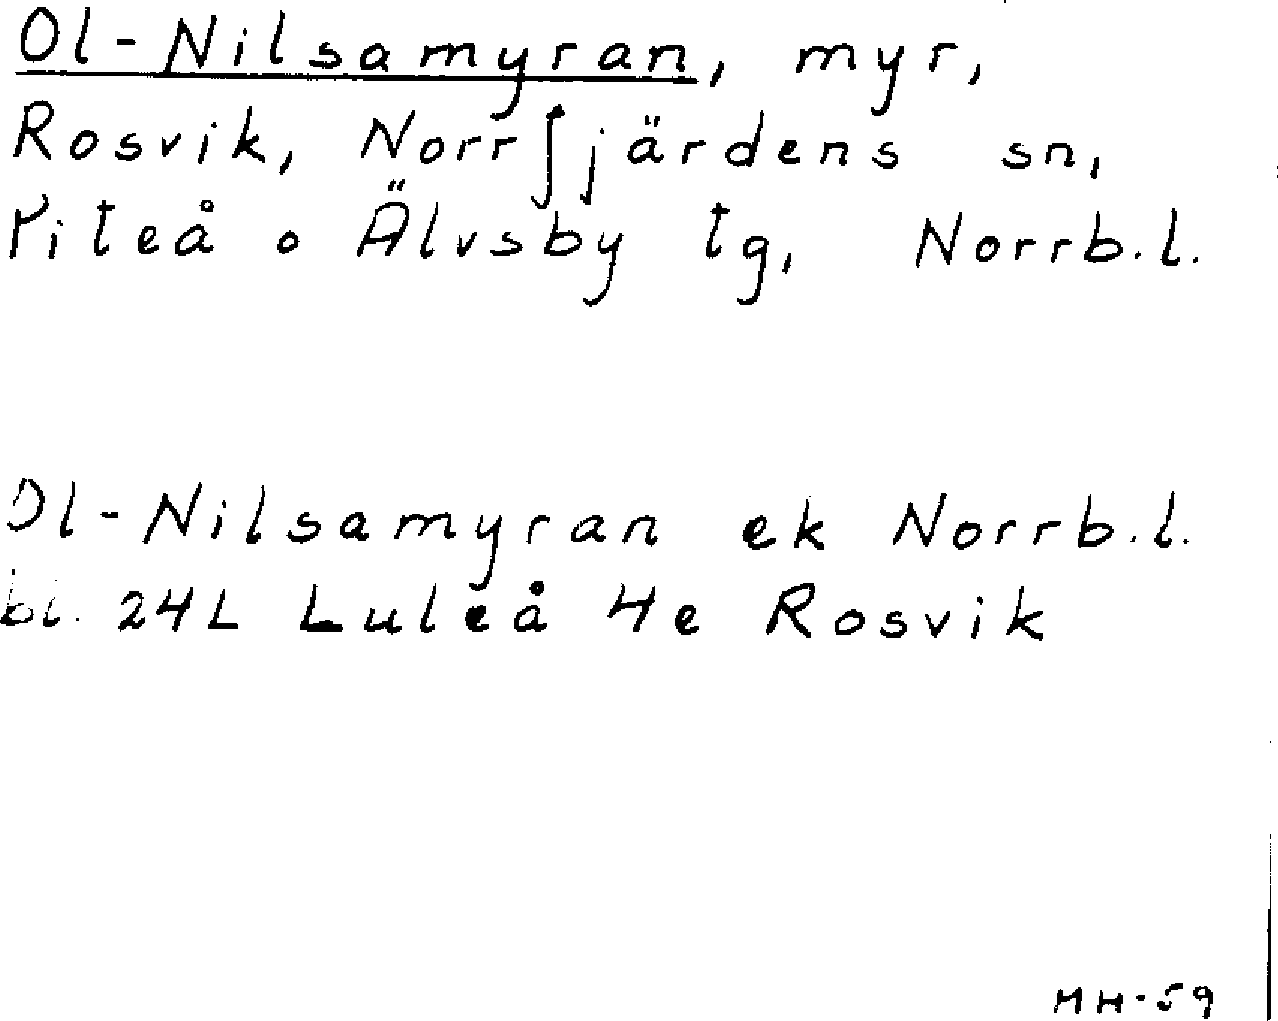 Ol-Nilsamyran, myr,
Rosvik, Norrfjärdens sn,
Piteå o Älvsby tg, Norrb.l.
Ol-Nilsamyran ek Norrb.l.
bl. 24L Luleå 4e Rosvik
MH-59